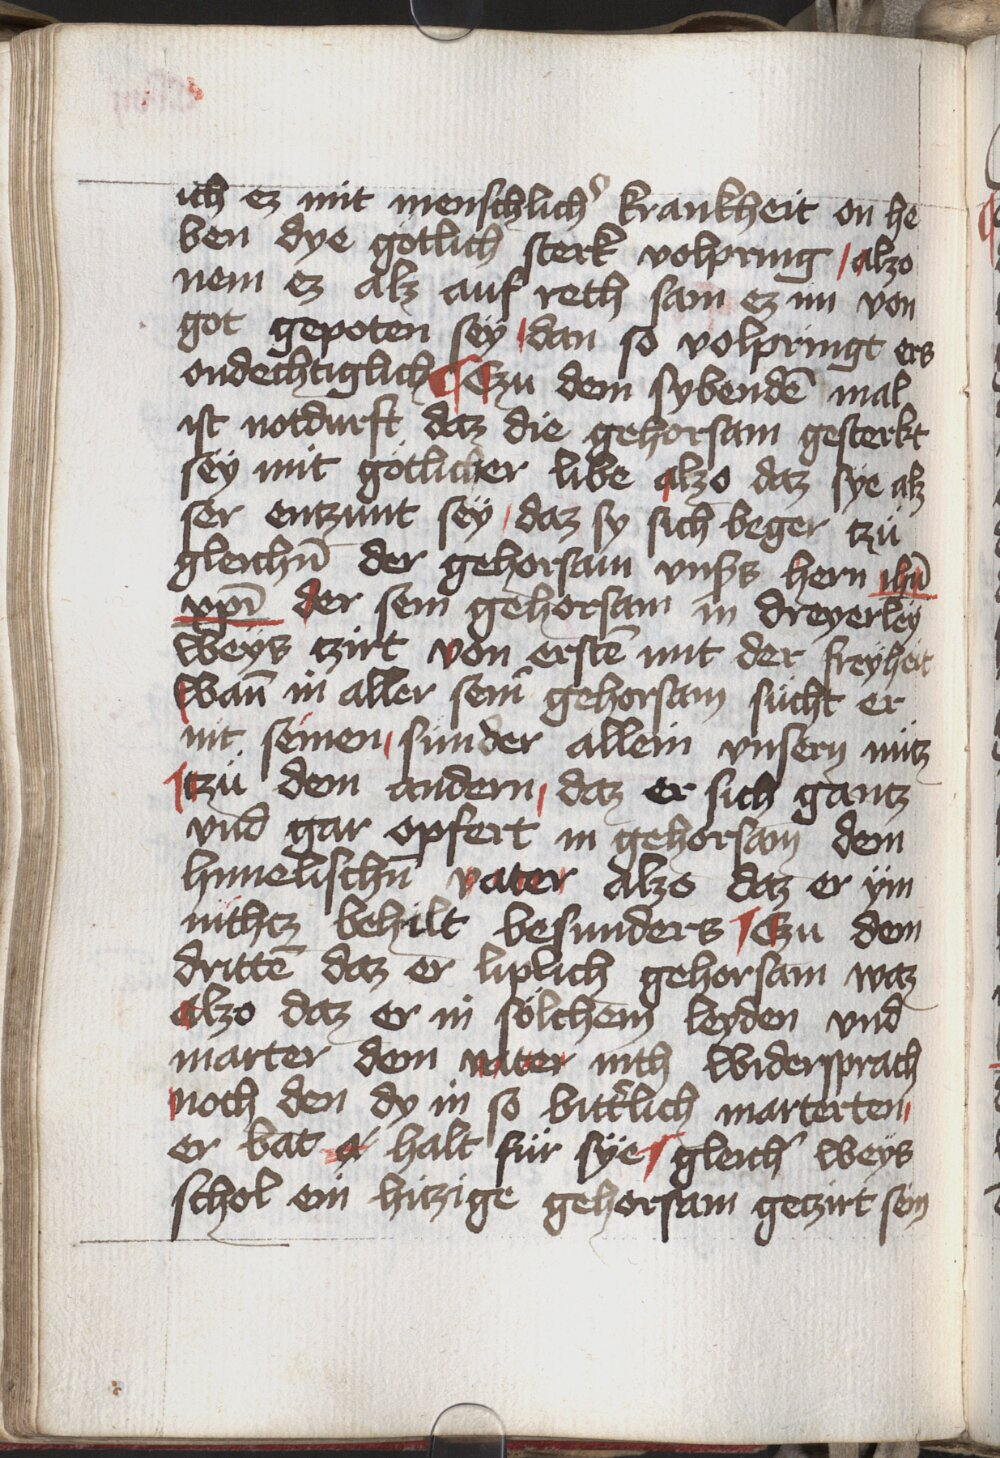 ich ez mit menschlich' krankheit on he
ben dye gotlich sterk volpring / alzo
nem ez alz auf reth sam ez im von
got gepoten sey / dan so volpringt ers
ondechtiglich ¶ Czu dem sybendē mal
ist notdurft daz die gehorsam gesterkt
sey mit gotlicher libe alzo daz sye alz
ser entzunt sey / daz sy sich beger tzu
gleichn̄ der gehorsam vnsers hern ihū
xp̄i der sein gehorsam in dreyerley
weys tzirt von erstē mit der freyheit
wan̄ in aller sein̄ gehorsam sücht er
nit seinen / sunder allein vnsern nütz
¶ tzü dem andern / daz er sich gantz
vnd gar opfert in gehorsam dem
himelischn̄ vater alzo daz er ÿm
nichtz behilt besunders ¶ Czu dem
drittē daz er liplich gehorsam waz
alzo daz er in sölchem leyden vnd
marter dem vater nith widersprach
noch den dy in so bitt'lich marterten /
er bat halt für sÿe ¶ gleich' weys
schol ein hitzige gehorsam getzirt sein